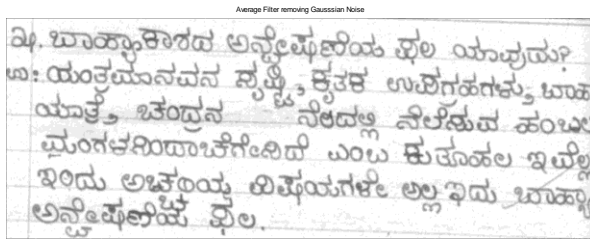 Average Filter removing Gausssian Noise
೩೪. ಬಾಹ್ಯಾಕಾಶದ ಅನ್ವೇಷಣೆಯ ಫಲ ಯಾವುದು?
ಉ: ಯಂತ್ರಮಾನವನ ಸೃಷ್ಟಿ, ಕೃತಕ ಉಪಗ್ರಹಗಳು, ಬಾಹ
ಯಾತ್ರೆ, ಚಂದ್ರನ ನೆಲದಲ್ಲಿ ನೆಲೆಸುವ ಹಂಬಲ
ಮಂಗಳನಿಂದಾಚೆಗೇನಿದೆ ಎಂಬ ಕುತೂಹಲ ಇವೆಲ್ಲ
ಇಂದು ಅಚ್ಚರಿಯ ವಿಷಯಗಳೇ ಅಲ್ಲ ಇದು ಬಾಹ್ಯಾ
ಅನ್ವೇಷಣೆಯ ಫಲ.